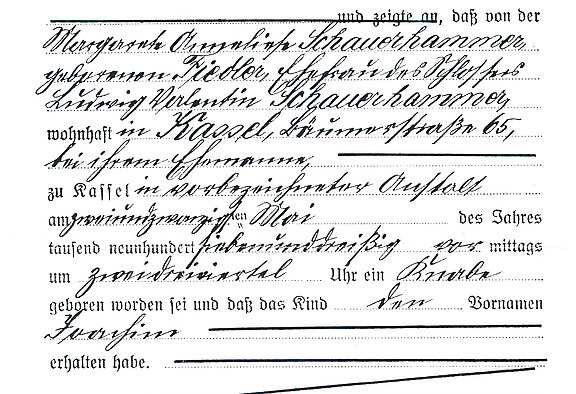 und zeigte an, daß von der
Margarete Anneliese Schauerhammer,
geborenen Fiedler, Ehefrau des Schlossers
Ludwig Valentin Schauerhammer,
wohnhaft in Kassel, Bäumerstraße 65,
bei ihrem Ehemanne,
zu Kassel in vorbezeichneter Anstalt
am zweiundzwanzigsten Mai des Jahres
tausend neunhundert siebenunddreißig vor mittags
um zweidreiviertel Uhr ein Knabe
geboren worden sei und daß das Kind den Vornamen
Joachim
erhalten habe.